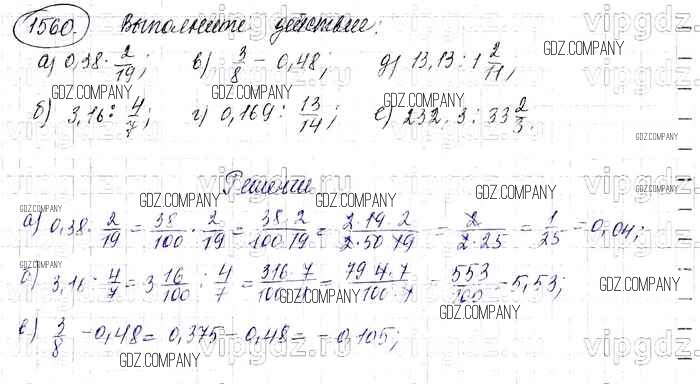 1560. Выполните действия:
а) 0,38 · 2/19; в) 3/8 - 0,48; д) 13,13 : 1 2/11;
б) 3,16 : 4/7; г) 0,169 : 13/14; е) 232,3 : 33 2/3.
Решение
а) 0,38 · 2/19 = 38/100 · 2/19 = 38·2/100·19 = 2·19·2/2·50·19 = 2/2·25 = 1/25 = 0,04;
б) 3,16 : 4/7 = 3 16/100 : 4/7 = 316·7/100·4 = 79·4·7/100·4 = 553/100 = 5,53;
в) 3/8 - 0,48 = 0,375 - 0,48 = - 0,105;
GDZ.COMPANY
vipgdz.ru